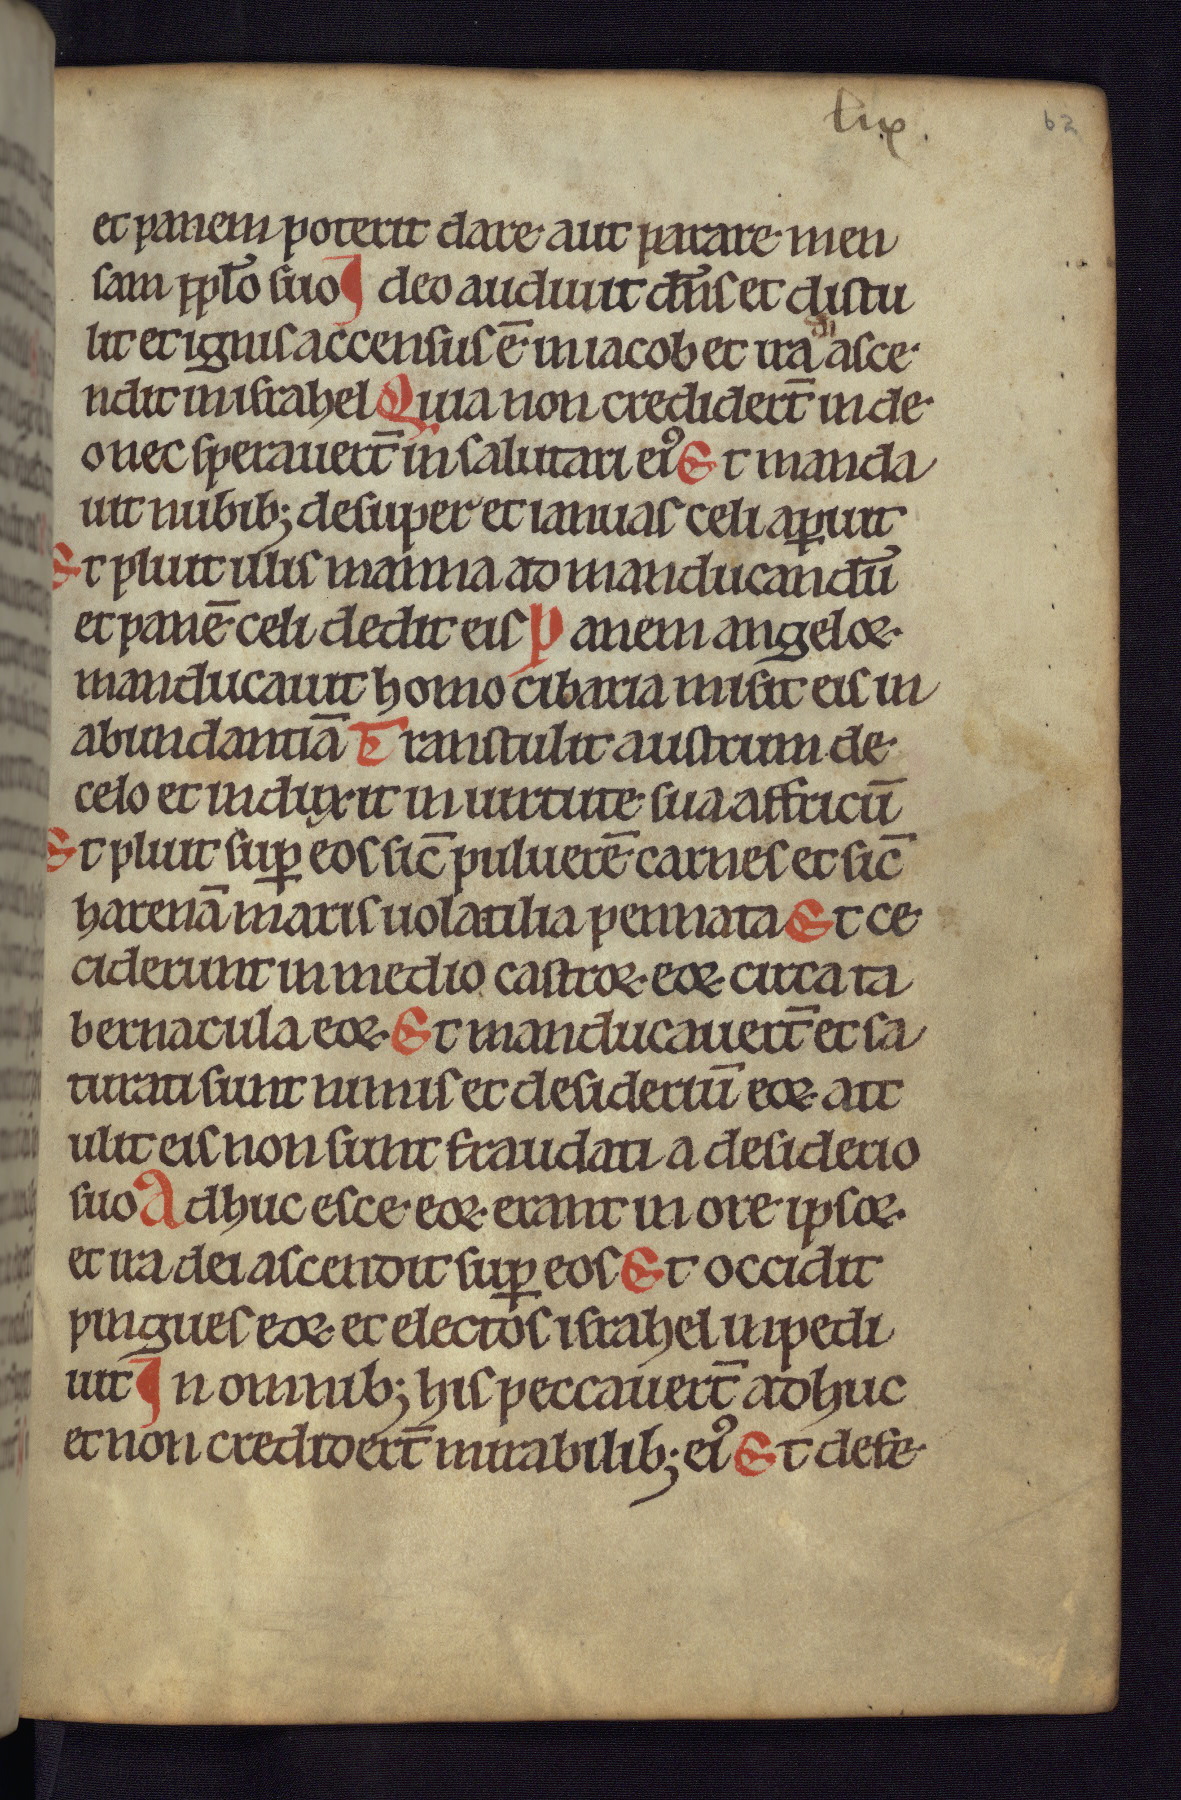 62
et panem poterit dare aut parare men
sam pplo suo I deo audiuit dns et distu
lit et ignis accensus ē in iacob et ira di asce
ndit in israhel Quia non credidert̄ in de
o nec sperauert̄ in salutari ei᾽ Et manda
uit nubib; desuper et ianuas celi aꝑuit
Et pluit illis manna ad manducandū
et panē celi dedit eis Panem angeloꝝ
manducauit homo cibaria misit eis in
abundantiā Transtulit austrum de
celo et induxit in uirtute sua affricū
Et pluit suꝑ eos sic̄ puluerē carnes et sic̄
harenā maris uolatilia pennata Et ce
ciderunt in medio castroꝝ eoꝝ circa ta
bernacula eoꝝ Et manducauert̄ et sa
turati sunt nimis et desideriū eoꝝ att
ulit eis non sunt fraudati a desiderio
suo Adhuc esce eoꝝ erant in ore ipsoꝝ
et ira dei ascendit suꝑ eos Et occidit
pingues eoꝝ et electos israhel inpedi
uit In omnib; his peccauert̄ adhuc
et non credidert̄ mirabilib; ei᾽ Et defe